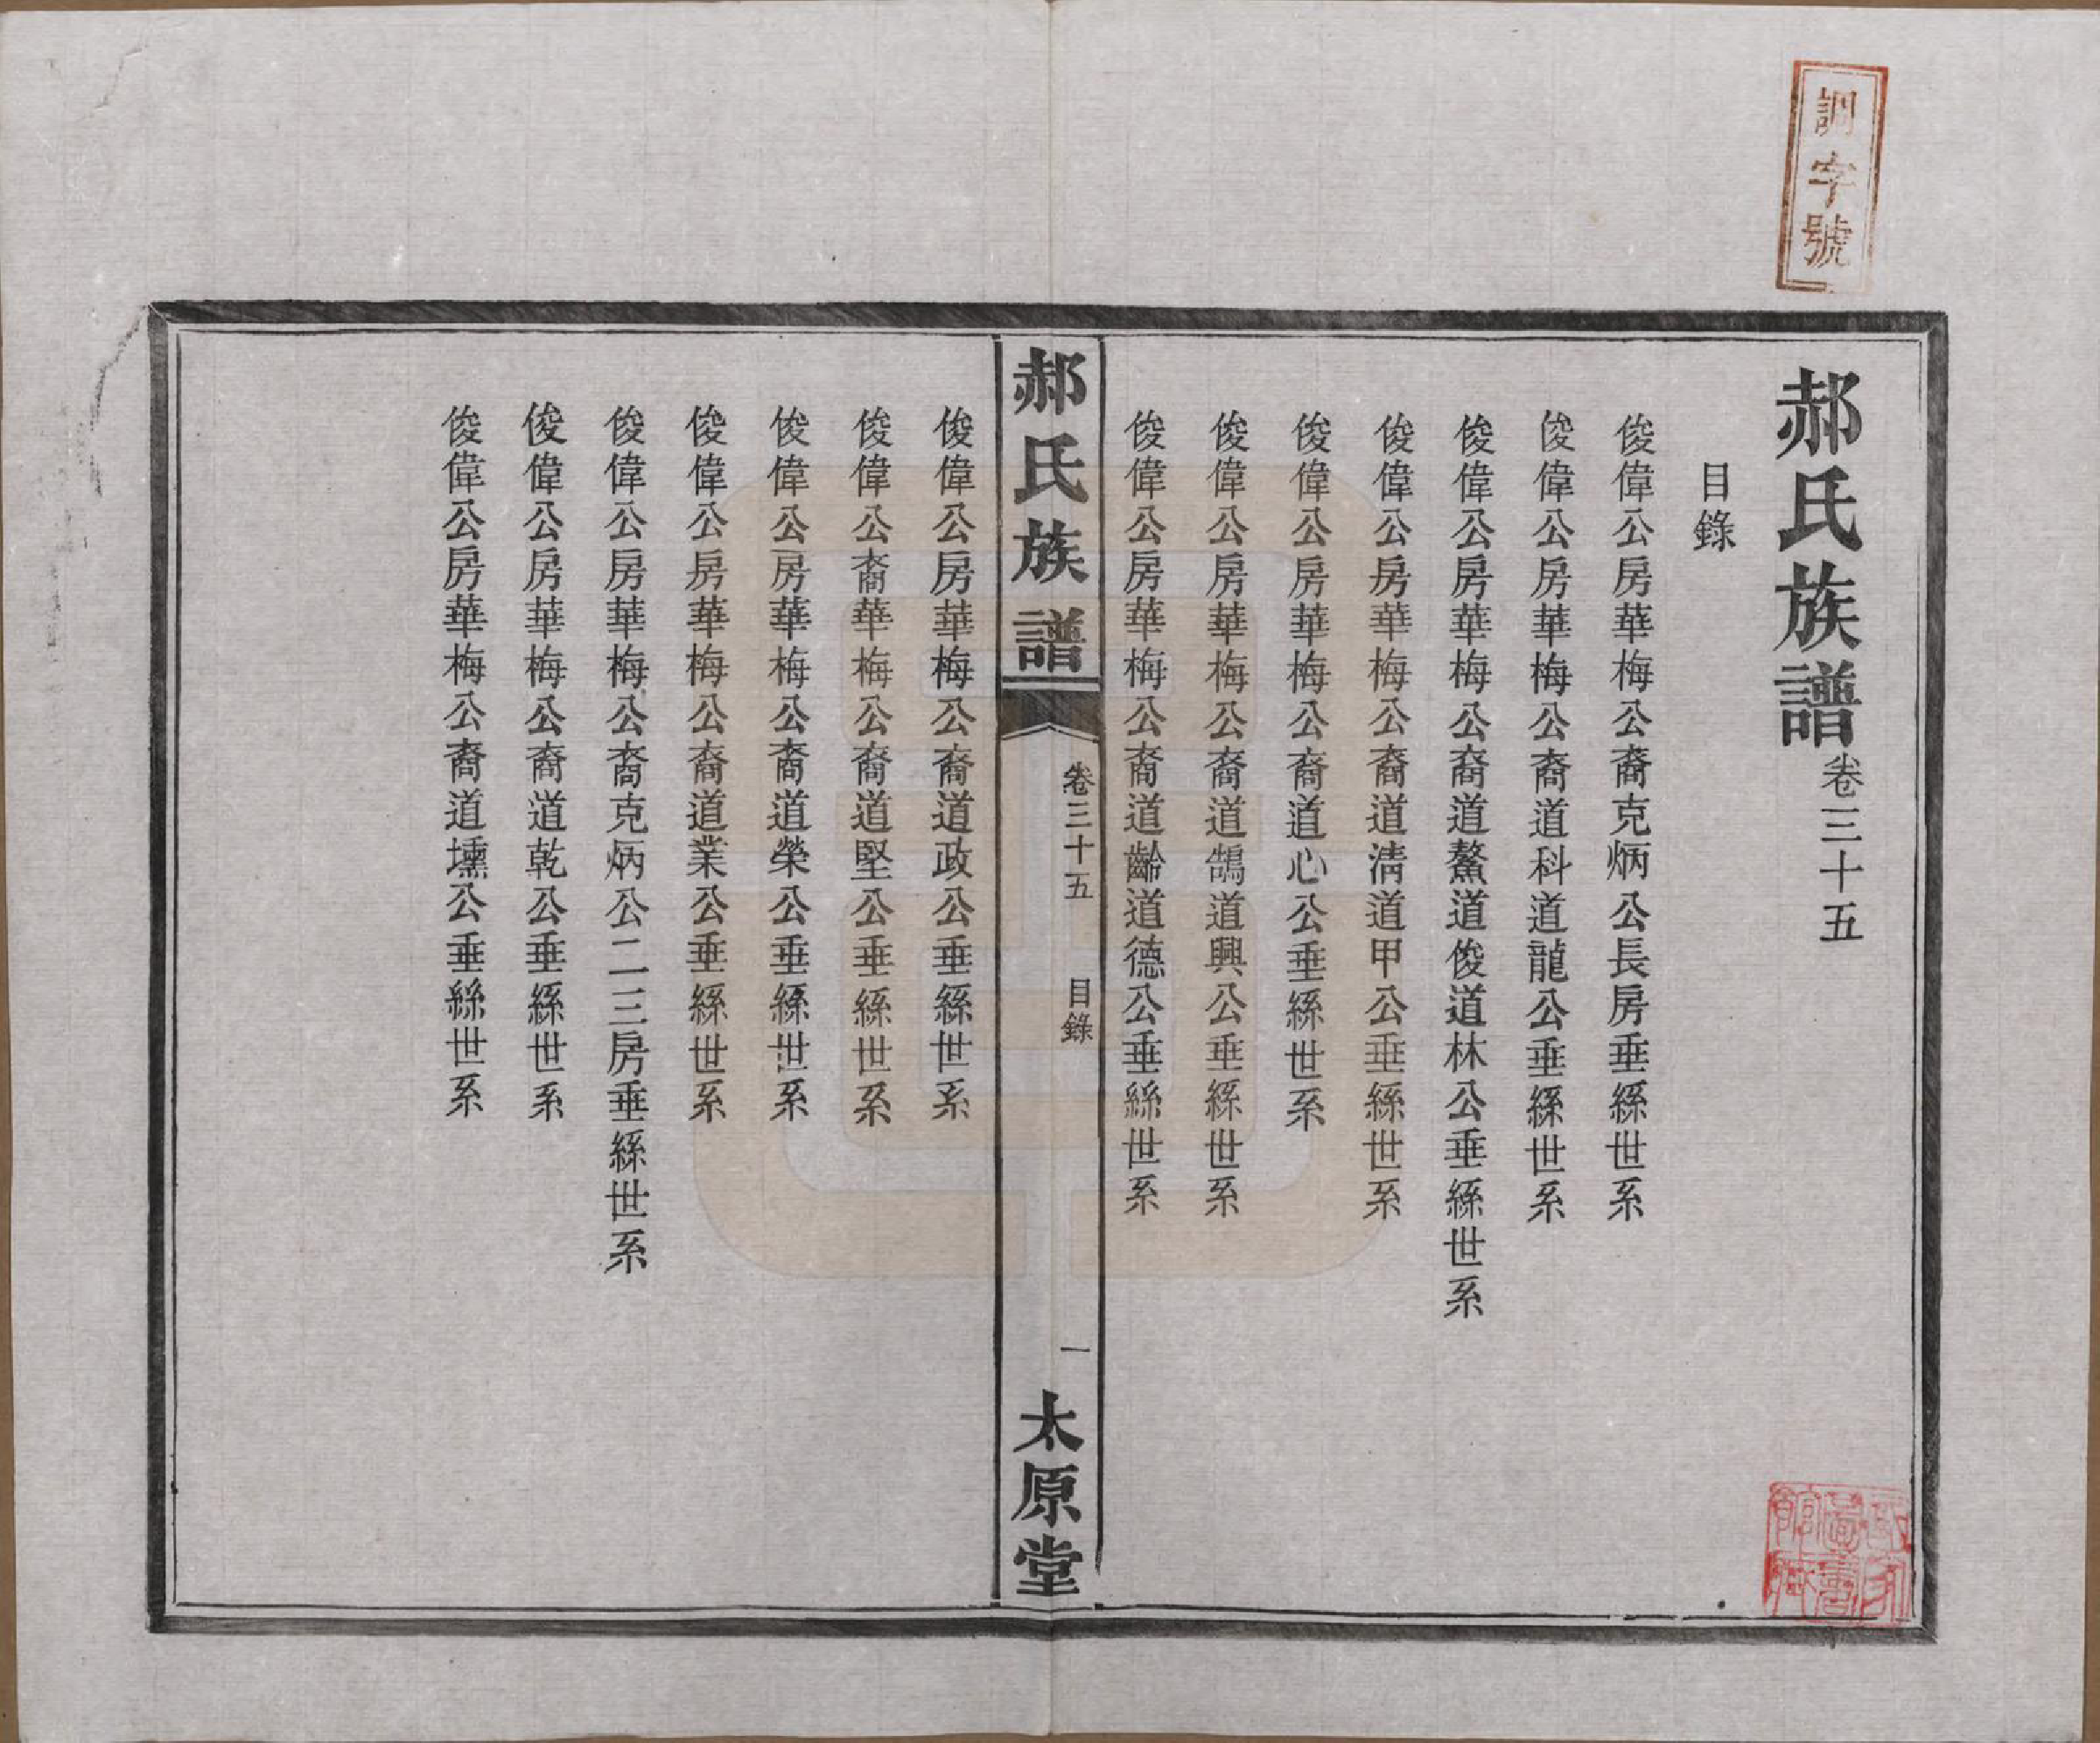 調字號
郝氏族譜卷三十五
目錄
俊偉公房華梅公裔克炳公長房垂絲世系
俊偉公房華梅公裔道科道龍公垂絲世系
俊偉公房華梅公裔道鰲道俊道林公垂絲世系
俊偉公房華梅公裔道清道甲公垂絲世系
俊偉公房華梅公裔道心公垂絲世系
俊偉公房華梅公裔道鵠道興公垂絲世系
俊偉公房華梅公裔道齡道德公垂絲世系
郝氏族譜
卷三十五 目錄 一
太原堂
俊偉公房華梅公裔道政公垂絲世系
俊偉公裔華梅公裔道堅公垂絲世系
俊偉公房華梅公裔道榮公垂絲世系
俊偉公房華梅公裔道業公垂絲世系
俊偉公房華梅公裔克炳公二三房垂絲世系
俊偉公房華梅公裔道乾公垂絲世系
俊偉公房華梅公裔道壎公垂絲世系